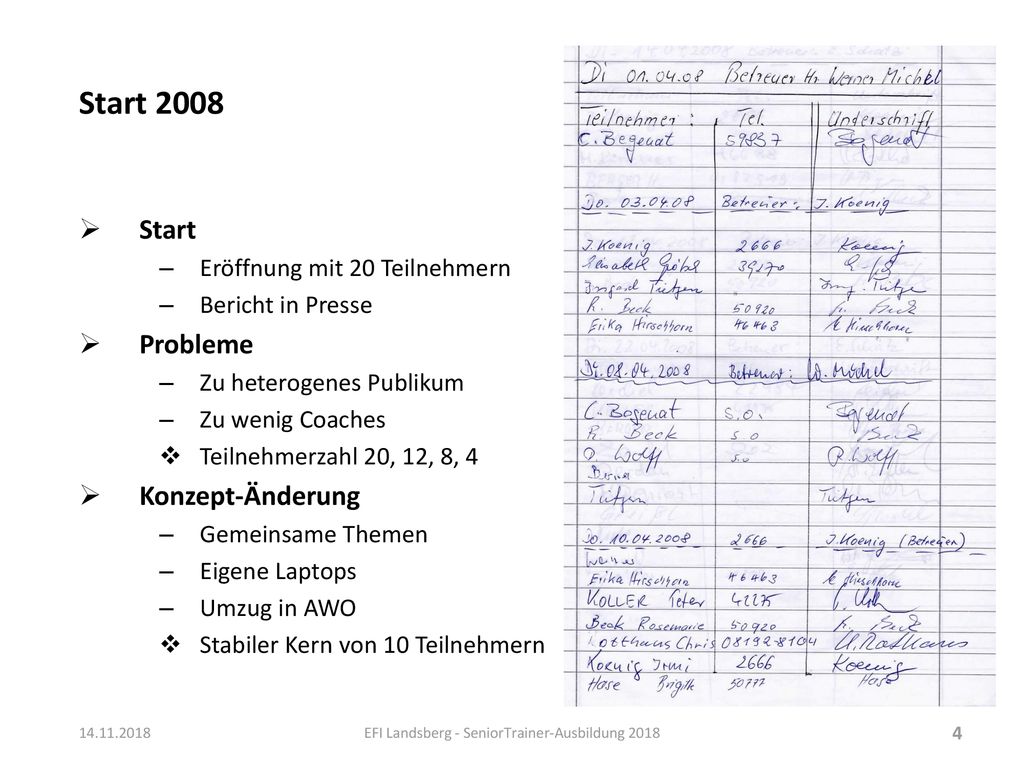 Start 2008
Start
– Eröffnung mit 20 Teilnehmern
– Bericht in Presse
Probleme
– Zu heterogenes Publikum
– Zu wenig Coaches
Teilnehmerzahl 20, 12, 8, 4
Konzept-Änderung
– Gemeinsame Themen
– Eigene Laptops
– Umzug in AWO
Stabiler Kern von 10 Teilnehmern
Di 01.04.08 Betreuer Hr Werner Michkl
Teilnehmer : Tel. Underschrift
C. Begenat 59837
Do. 03.04.08 Betreuer: J. Koenig
J. Koenig 2666 Koenig
Elisabeth 39270
Irmgard Tützen
R. Beck 50920 Beck
Erika Hirschhorn 46463
Di. 08.04.2008 Betreuer:
C. Bogenat s.o.
R. Beck s.o Beck
O. Wolff s.o R. Wolff
Tützen Tützen
Do. 10.04.2008 2666 J. Koenig (Betreuer)
Erika Hirschhorn 46463
KOLLER Peter 42275
Beck Rosemarie 50920 Beck
Chris 08192-8104
Koenig Irmi 2666 Koenig
Hase Brigitt 50777 Hase
14.11.2018
EFI Landsberg - SeniorTrainer-Ausbildung 2018
4